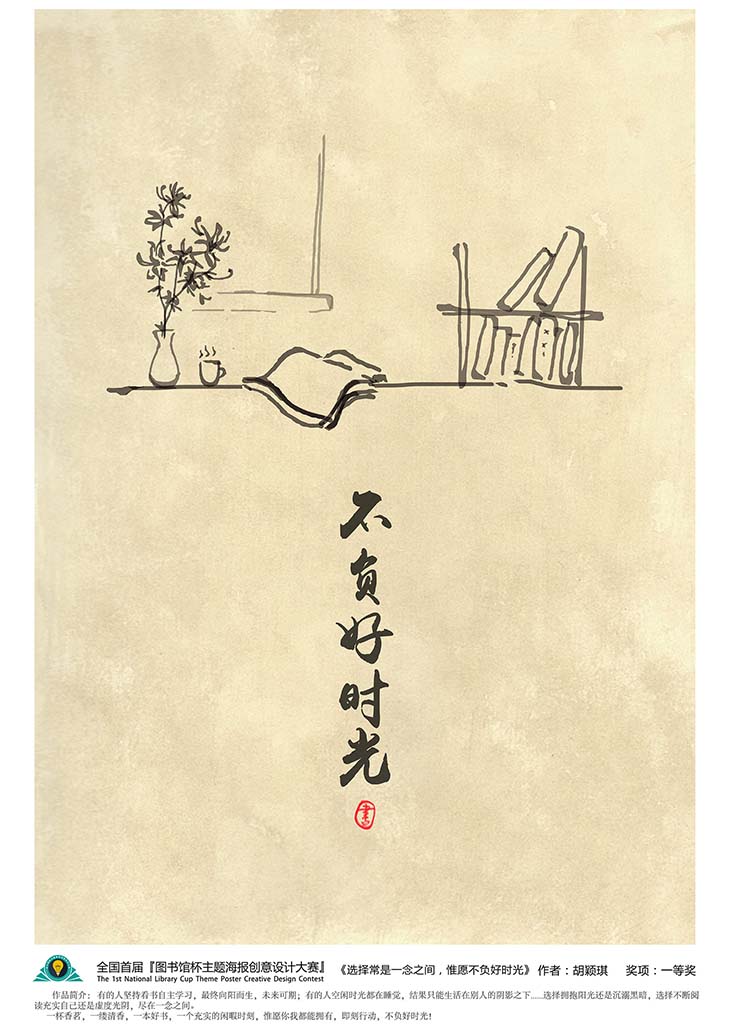 不负好时光
書
全国首届『图书馆杯主题海报创意设计大赛』 《选择常是一念之间，惟愿不负好时光》 作者：胡颖琪 奖项：一等奖
The 1st National Library Cup Theme Poster Creative Design Contest
作品简介：有的人坚持看书自主学习，最终向阳而生，未来可期；有的人空闲时光都在睡觉，结果只能生活在别人的阴影之下......选择拥抱阳光还是沉溺黑暗，选择不断阅
读充实自己还是虚度光阴，尽在一念之间。
一杯香茗，一缕清香，一本好书，一个充实的闲暇时刻，惟愿你我都能拥有，即刻行动，不负好时光！